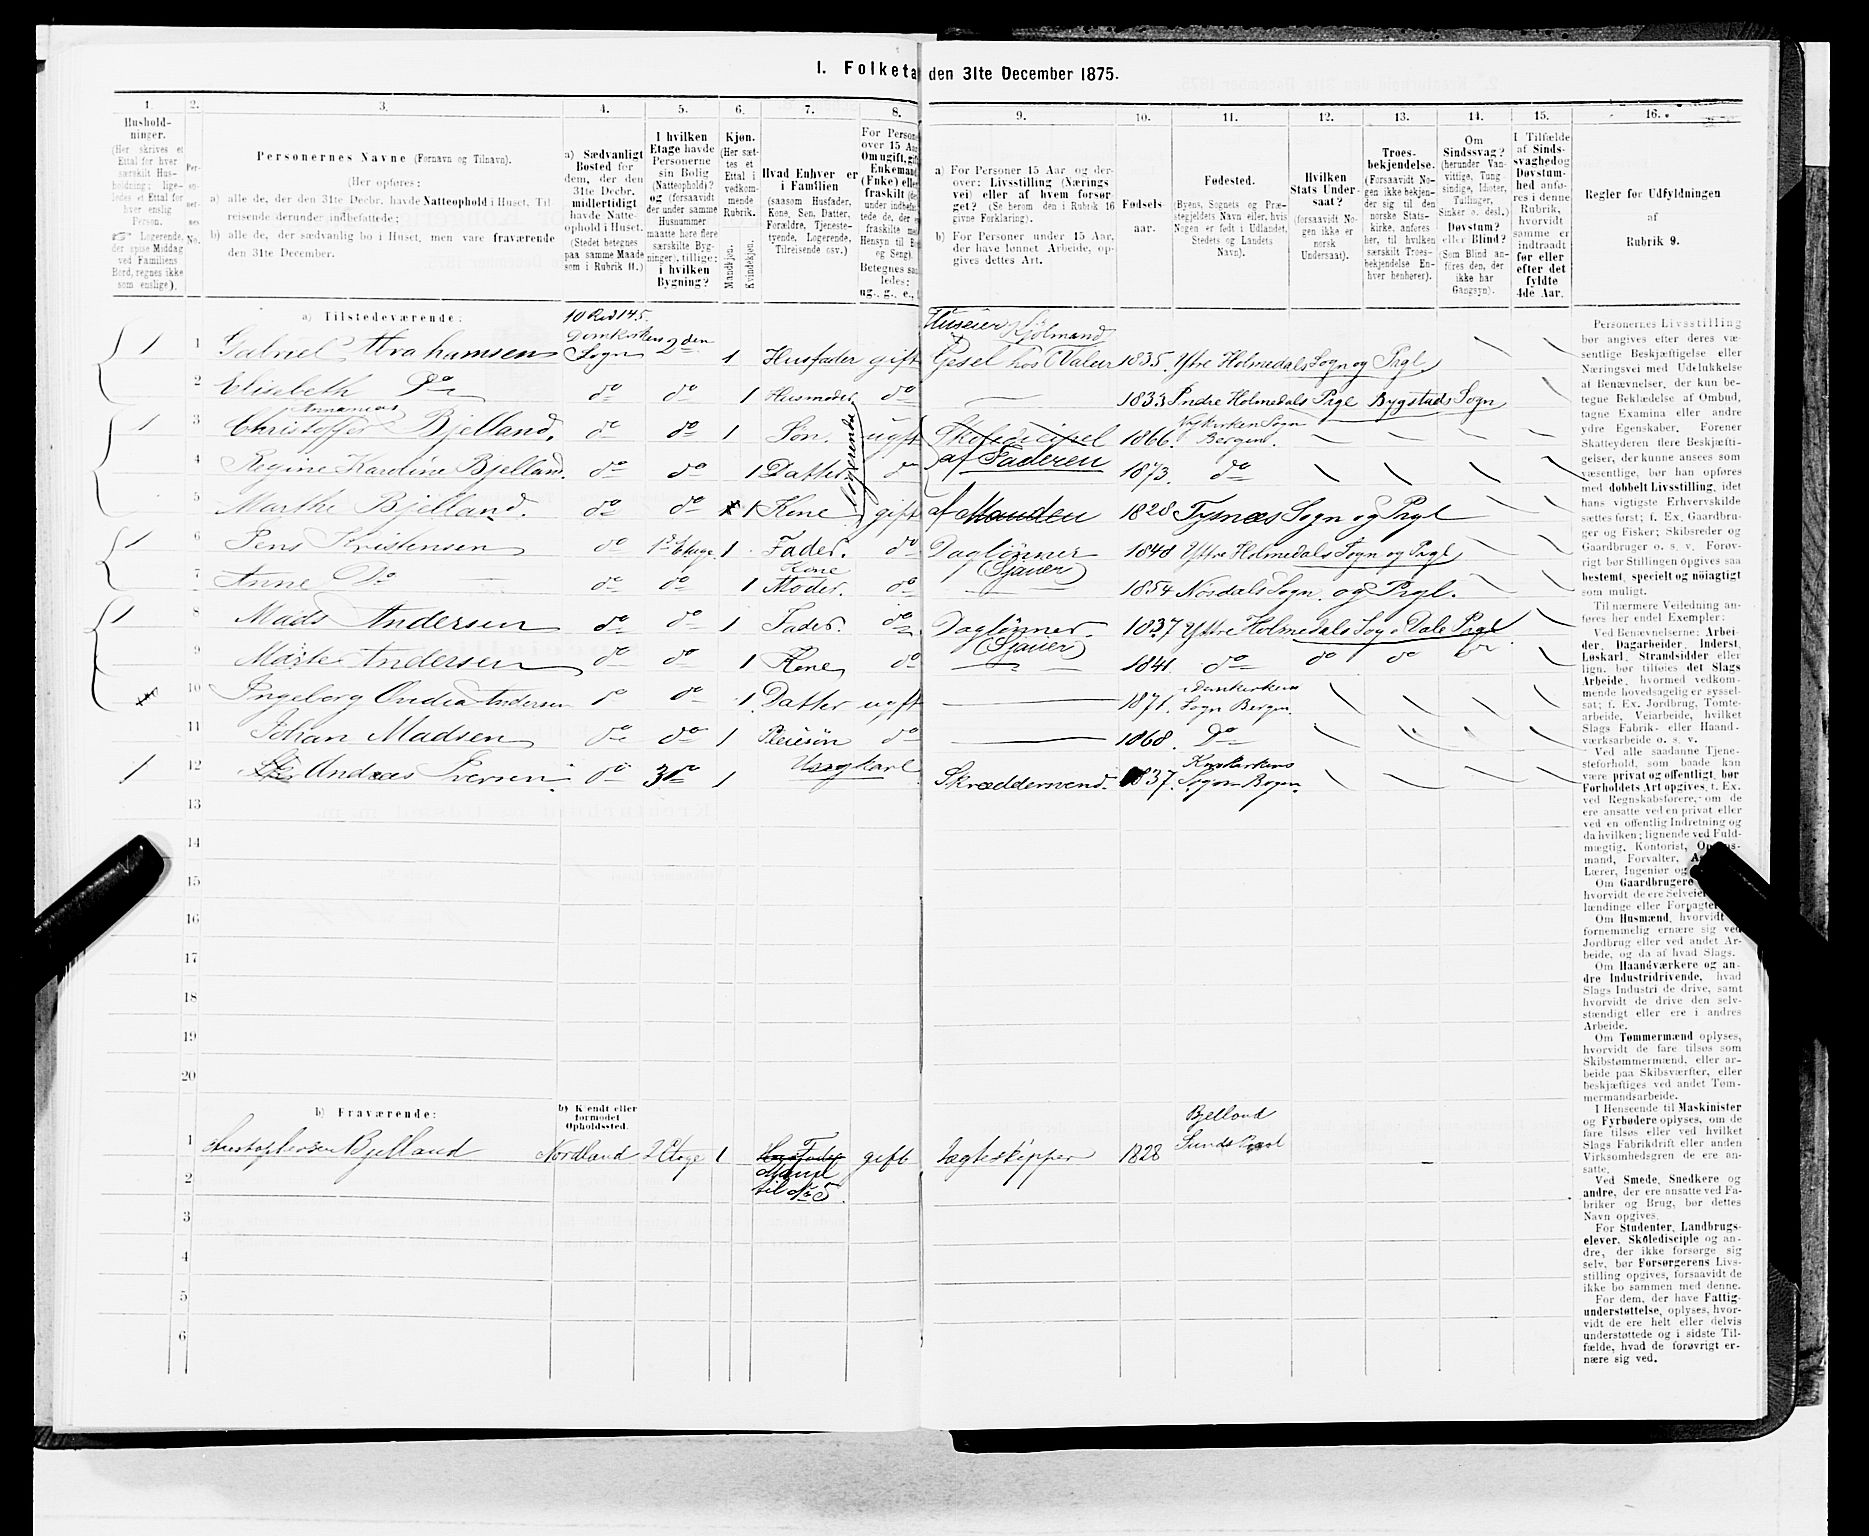 I. Folketa den 31te December 1875.
1. 2. 3. 4. 5. 6. 7. 8. 9. 10. 11. 12. 13. 14. 15. 16.
Hushold-
ninger.
(Her skrives et
Ettal for hver
særskilt Hus-
holdning; lige-
ledes et Ettal for
hver enslig
Person.
Logerende,
der spise Middag
ved Familiens
Bord, regnes ikke
som enslige).
Per-
so-
ner-
nes
No.
Personernes Navne (Fornavn og Tilnavn).
(Her opføres:
a) alle de, der den 31te Decbr. havde Natteophold i Huset, Til-
reisende derunder indbefattede;
b) alle de, der sædvanlig bo i Huset, men vare fraværende
den 31te December.
a) Sædvanligt
Bosted for
dem, der den
31te Decbr.
midlertidigt
havde Natte-
ophold i Huset.
(Stedet betegnes
paa samme Maade
som i Rubrik 11.)
I hvilken
Etage havde
Personerne
sin Bolig
(Natteophold)?
og (forsaavidt
der under samme
Husnummer
maatte høre flere
særskilte Byg-
ninger), tillige:
i hvilken
Bygning?
Kjøn.
(Her sæt-
tes et
Ettal i
vedkom-
mende
Rubrik.
Mandkjøn.
Kvindekjøn.
Hvad Enhver er
i Familien
(saasom Husfader,
Kone, Søn, Datter,
Forældre, Tjeneste-
tyende, Logerende,
Tilreisende osv.)
For Person
over 15 Aa
Om ugift, gif
Enkemand
(Enke) elle
fraskilt (de
under indbefat-
tede de, der e
fraskilte me
Hensyn til Bo
og Seng).
Betegnes saa
ledes:
ug., g., e.,
a) For Personer 15 Aar og der-
over: Livsstilling (Nærings
vei) eller af hvem forsør-
get? (Se herom den i Rubrik 16
givne Forklaring).
b) For Personer under 15 Aar,
der have lønnet Arbeide, op-
gives dettes Art.
Fødsels-
aar.
Fødested.
(Byens, Sognets og Præ-
stegjeldets Navn eller, hvis
Nogen er født i Udlandet,
Stedets og Landets
Navn).
Hvilken
Stats Under-
saat?
(forsaavidt No-
gen ikke er
norsk
Undersaat).
Troes-
bekjendelse.
(Forsaavidt No-
gen ikke bekjen-
der sig til den
norske Stats-
kirke, anføres
her, til hvilken
særskilt Troes-
bekjendelse En-
hver henhører).
Om
Sindssvag?
(herunder Van-
vittige, Tung-
sindige, Idioter,
Tullinger,
Sinker o. desl.)
Døvstum?
eller Blind?
(Som Blind an-
føres den, der
ikke har
Gangsyn).
I Tilfælde
af Sinds-
svaghed og
Døvstum-
hed anfø-
res i denne
Rubrik,
hvorvidt
samme er
indtraadt
før eller
efter det
fyldte
4de Aar.
Regler for Udfyldningen
af
Rubrik 9.
a) Tilstedeværende:
10 Rd 145.
1 1 Gabriel Abrahamsen Domkirkens Sogn 2den 1 Husfader gift Huseier Sjølmand Gsel hos 1835. Ytre Holmedals Sogn og Prgl
2 Elisabeth Do do do 1 Husmoder do 1833 Indre Holmedals Prgl Bygstad Sogn
1 3 Christoffer Annanias Bjelland. do do 1 Søn. ugift Skoledicipel 1866. Nykirken Sogn Bergen.
4 Regine Kardine Bjelland. do do 1 Datter do af Faderen 1873. do
Logerende
5 Marthe Bjelland. do do 1 Kone gift af Manden 1828 Tysnæs Sogn og Prgl
1 6 Jens Kristensen do 1ste Etage 1 Fader. do Dagløнner Sjauer 1848 Ytre Holmedals Sogn og Prgl
7 Anne Do do do 1 Kone Moder. do 1854 Nordals Sogn og Prgl.
1 8 Mads Andersen do do 1 Fader. do Dagløнner. Sjauer 1837 Yttre Holmedals Sog Dale Prgl
9 Marte Andersen do do 1 Kone do 1841. do do do do
10 Ingeborg Andersen do do 1 Datter ugift 1871. Domkirkens Sogn Bergen.
11 Johan Madsen do do 1 Pleiesøn do 1868. Do
1 12 Andreas Iversen do 3de 1 Ungkarl Skræddersvend. 1837. Korskirkens Sogn Bergen.
13
14
15
16
17
18
19
20
b) Fraværende:
b) Kjendt eller
formodet
Opholdssted.
1 Bjelland Nordland 2 Etage 1 Hus Fader gift Jagteskipper 1828 Bjelland Sunds
2 Mand til No 5
3
4
5
6
Personernes Livsstilling
bør angives efter deres væ-
sentlige Beskjæftigelse eller
Næringsvei med Udelukkelse
af Benævnelser, der kun be-
tegne Beklædelse af Ombud,
tagne Examina eller andre
ydre Egenskaber. Forener
Skatteyderen flere Beskjæfti-
gelser, der kunne ansees som
væsentlige, bør han opføres
med dobbelt Livsstilling, idet
hans vigtigste Erhvervskilde
sættes først; f. Ex. Gaardbru-
ger og Fisker; Skibsreder og
Gaardbruger o. s. v. Forøv-
rigt bør Stillingen opgives saa
bestemt, specielt og nöiagtigt
som muligt.
Til nærmere Veiledning an-
føres her endel Exempler:
Ved Benævnelserne: Arbei-
der, Dagarbeider, Inderst,
Løskarl, Strandsidder eller
lign. bør tilføies det Slags
Arbeide, hvormed vedkom-
mende hovedsagelig er syssel-
sat; f. Ex. Jordbrug, Tomte-
arbeide, Veiarbeide, hvilket
Slags Fabrik- eller Haand-
værksarbeide o. s. v.
Ved alle saadanne Tjene-
steforhold, som baade kan
være privat og offentligt, bør
Forholdets Art opgives, t. Ex.
ved Regnskabsførere, om de
ere ansatte ved en privat eller
ved en offentlig Indretning og
da hvilken; lignende ved Fuld-
mægtig, Kontorist,
mand, Forvalter,
Lærer, Ingeniør og
Om Gaardbrugere
hvorvidt de ere Selveiere,
lændinge eller Forpagtere
Om Husmænd, hvorvidt
fornemmelig ernære sig ved
Jordbrug eller ved andet Ar-
beide, og da af hvad Slags.
Om Haandværkere og an-
dre Industridrivende, hvad
Slags Industri de drive, samt
hvorvidt de drive den selv-
stændigt eller ere i andres
Arbeide.
Om Tømmermænd oplyses,
hvorvidt de fare tilsøs som
Skibstømmermænd, eller ar-
beide paa Skibsværfter, eller
beskjæftiges ved andet Tøm-
mermandsarbeide.
I Henseende til Maskinister
og Fyrbødere oplyses, om de
fare tilsøs eller ved hvilket
Slags Fabrikdrift eller anden
Virksomhedsgren de ere an-
satte.
Ved Smede, Snedkere og
andre, der ere ansatte ved Fa-
briker og Brug, bør dettes
Navn opgives.
For Studenter, Landbrugs-
elever, Skoledisciple og an-
dre, der ikke forsørge sig
selv, bør Forsørgerens Livs-
stilling opgives, forsaavidt de
ikke bo sammen med denne.
For dem, der have Fattig-
understøttelse, oplyses, hvor-
vidt de ere helt eller delvis
understøttede og i sidste Til-
fælde, hvad de forøvrigt er-
nære sig ved.